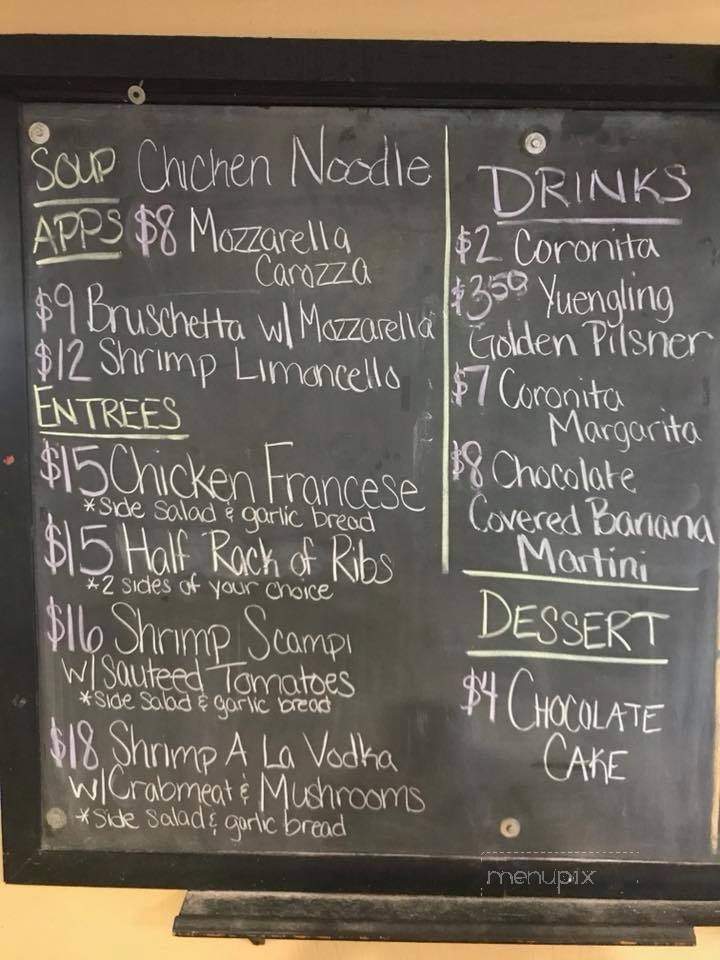 SOUP Chicken Noodle
APPS $8 Mozzarella
Carozza
$9 Bruschetta w/ Mozzarella
$12 Shrimp Limoncello
ENTREES
$15 Chicken Francese
*Side Salad & garlic bread
$15 Half Rack of Ribs
*2 sides of your choice
$16 Shrimp Scampi
w/ Sauteed Tomatoes
*Side Salad & garlic bread
$18 Shrimp A La Vodka
w/ Crabmeat & Mushrooms
*Side Salad & garlic bread
DRINKS
$2 Coronita
$3.50 Yuengling
Golden Pilsner
$7 Coronita
Margarita
$8 Chocolate
Covered Banana
Martini
DESSERT
$4 CHOCOLATE
CAKE
menupix